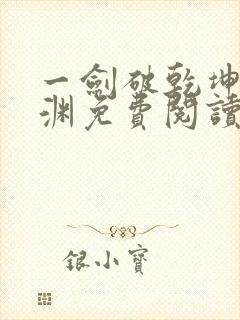 一劍破乾坤
淵免費閱讀
銀小寶